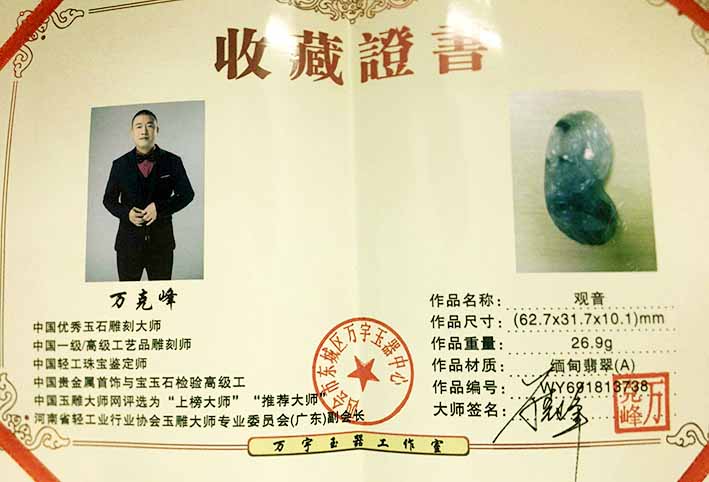 收藏證書
万克峰
中国优秀玉石雕刻大师
中国一级/高级工艺品雕刻师
中国轻工珠宝鉴定师
中国贵金属首饰与宝玉石检验高级工
中国玉雕大师网评选为“上榜大师”  “推荐大师”
河南省轻工业行业协会玉雕大师专业委员会(广东)副会长
作品名称: 观音
作品尺寸: (62.7x31.7x10.1)mm
作品重量: 26.9g
作品材质: 缅甸翡翠(A)
作品编号: WY691813738
大师签名:
万克峰
会市东城区万宇玉器中心
万宇玉器工作室